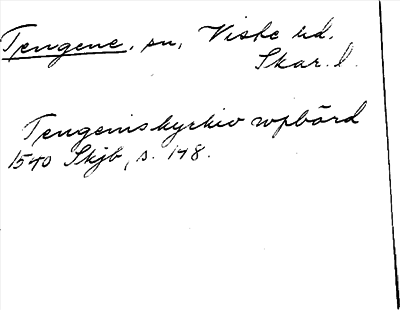 Tengene, sn, Viste hd.
Skar. l.
Tengeniskyrkio vpbörd
1540 Skjb, s. 148.